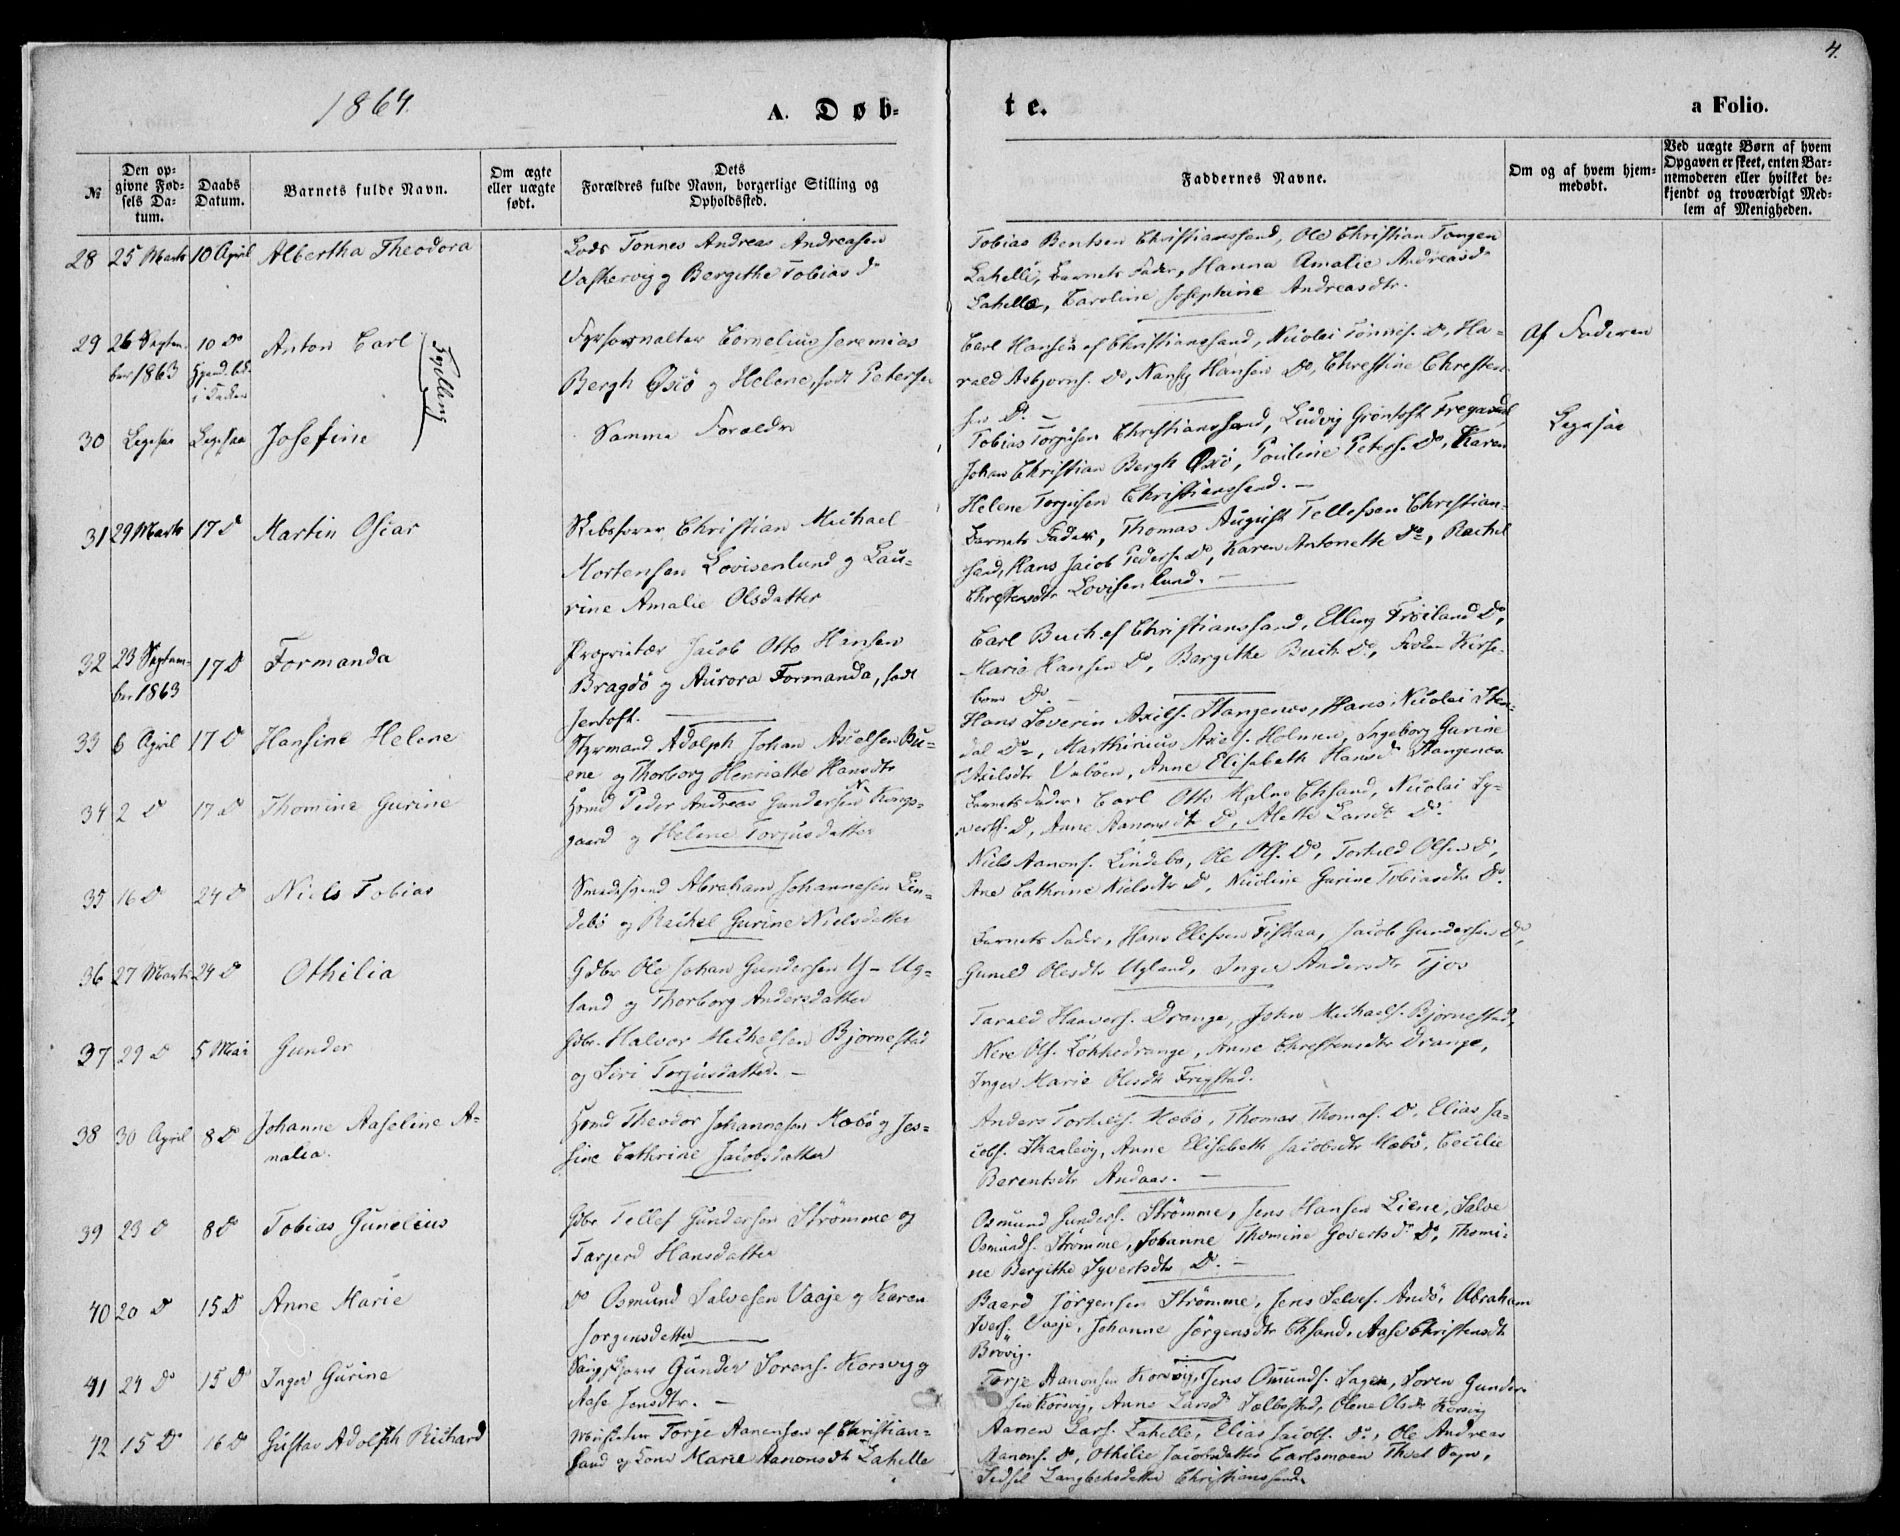 4.
1864.
A. Døb-
te.
a Folio.
No
Den op-
givne Fød-
sels Da-
tum.
Daabs
Datum.
Barnets fulde Navn.
Om ægte
eller uægte
født.
Dets
Forældres fulde Navn, borgerlige Stilling og
Opholdssted.
Faddernes Navne.
Om og af hvem hjem-
medøbt.
Ved uægte Børn af hvem
Opgaven er skeet, enten Bar-
nemoderen eller hvilket be-
kjendt og troværdigt Med-
lem af Menigheden.
28 25 Marts 10 April Albertha Theodora
Lods Tonnes Andreas Andreasen
Vaskervig og Bergithe Tobias d
Tobias Bentsen Christianssand, Ole Christian Tangen
Lahelle, Barnets Fader, Hanna Amalie Andreasd
Lahelle, Caroline Josephine Andreasdtr.
29 26 Septem-
ber 1863
10 do
Anton Carl
Tvilling
Fyrforvalter Cornelius Jeremias
Bergh Oxö og Helene, født Petersen
Carl Hansen af Christianssand, Nicolai Tönnes. Do, Ha-
rald Asbjorns. Do, Nansy Hansen Do, Christine Christen-
sen Do. —
Af Faderen
30 Ligesaa Ligesaa Josefine
Samme Forældre
Tobias Torgusen Christianssand, Ludvig Grøntoft
Johan Christian Bergh Oxö, Pouline Peters. Do, Karen
Helene Torgusen Christianssand. —
Ligesaa
31 29 Marts 17 d Martin Oscar
Skibsfører Christian Michael
Mortensen Lovisenlund og Lau-
rine Amalie Olsdatter
Barnets Fader, Thomas August Tellefsen Christian-
sand, Hans Jacob Peders. Do, Karen Antonette Do, Rachel
Christensdtr Lovisenlund. —
32 23 Septem-
ber 1863
17 d Formanda
Proprietær Jacob Otto Hansen
Bragdö og Aurora Formanda, født
Jentoft.
Carl Buch af Christianssand, Elling Fröiland Do,
Marie Hansen Do, Bergithe Buch Do,
33 6 April 17 d Hansine Helene
Styrmand Adolph Johan Axelsen Bu-
ene og Thorborg Henriette Hansdtr
Hans Severin Axels. Stangenes, Hans Nicolai
Do, Marthinius Axels. Holmen, Ingeborg Gurine
Axelsdtr Vaböen, Anne Elisabeth Hansd Stangenes
34 2 d 17 d Thomine Gurine
Hsmd Peder Andreas Gundersen Kongs-
gaard og Helene Torjusdatter
Barnets Fader, Carl Otto Holm Chsand, Nicolai Sy-
verts. d, Anne Aanonsdtr d, Alette Larsdtr do
35 16 d 24 d Niels Tobias
Smedesvend Abraham Johannesen Lin-
debö og Rachel Gurine Nielsdatter
Niels Aanons. Lindebö, Ole Ols. Do, Torkild Olsen d,
Ane Cathrine Nielsdtr d, Nicoline Gurine Tobiasdtr do
36 27 Marts 24 d Othilia
Gdbr Ole Johan Gundersen Y- Ug-
land og Thorborg Andersdatter
Barnets Fader, Hans Elefsen Fiskaa, Jacob Gundersen do,
Gunild Olesdtr Ugland, Inger Andersdtr Tjos
37 29 d 5 Mai Gunder
Gdbr. Halvor Michelsen Bjornestad
og Siri Torjusdatter. —
Tarald Haavers. Drange, John Michaels. Bjornestad,
Nere Ols. Lökkedrange, Anne Christensdtr Drange,
Inger Marie Olesdtr Frigstad.
38 30 April 8 d Johanne Aaseline A-
malia.
Hsmd Theodor Johannesen Mebö og Jes-
sine Cathrine Jacobsdatter
Anders Torkilds. Mebö, Thomas Thomas. do, Elias Ja-
cobs. Skaalevig, Anne Elisabeth Jacobsdtr Mebö, Cecilie
Berentsdtr Andaas. —
39 23 d 8 d Tobias Gunelius
Gdbr Tellef Gundersen Strömme og
Tarjerd Hansdatter
Osmund Gunders. Strömme, Jens Hansen Liene, Salve
Osmunds. Strömme, Johanne Thomine Govertsd do, Thomi-
ne Bergithe Syvertsdtr do. —
40 20 d 15 d Anne Marie
do Osmund Salvesen Vaaje og Karen
Jorgensdatter
Baard Jörgensen Strömme, Jens Salves. Andö, Abraham
Ivers. Vaaje, Johanne Jörgensdtr Chsand, Aase Christensdtr
Brövig.
41 24 d 15 d Inger Gurine
Gunder Sorens. Korsvig og
Aase Jensdtr. —
Torje Aanonsen Korsvig, Jens Omunds. Sagen, Soren Gunder-
sen Korsvig, Anne Larsd Sælbostad, Olene Olsdtr Korsvig
42 15 d 16 d Gustav Adolph Richard
Torje Aanensen af Christian-
sand og Marie Aanonsdtr Lahelle
Aanen Lars. Lahelle, Elias Jacobs. do, Ole Andreas
Aanons. d, Othilie Jacobsdatter Carlsmoen Sogn,
Sidsel Christianssand.